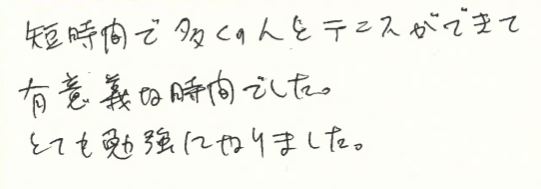 短時間で多くの人とテニスができて
有意義な時間でした。
とても勉強になりました。